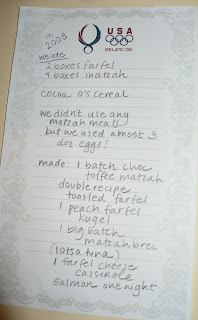 USA
BEIJING 08
in 2008
we ate
2 boxes farfel
4 boxes matzah
cocoa o's cereal
we didn't use any
matzah meal!
but we used almost 3
doz. eggs!
made: 1 batch choc
toffee matzah
double recipe
toasted farfel
1 peach farfel
kugel
1 big batch
matzah brei
(lotsa tuna)
1 farfel cheese
casserole
salmon one night